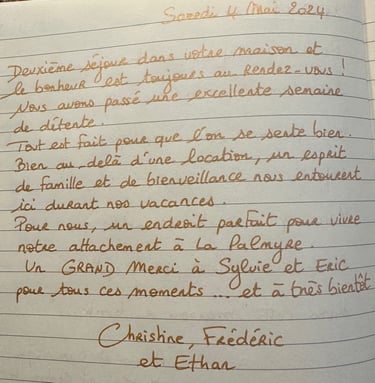 Samedi 4 Mai 2024
Deuxième séjour dans votre maison et
le bonheur est toujours au Rendez-vous !
Nous avons passé une excellente semaine
de détente.
Tout est fait pour que l'on se sente bien.
Bien au-delà d'une location, un esprit
de famille et de bienveillance nous entourent
ici durant nos vacances.
Pour nous, un endroit parfait pour vivre
notre attachement à La Palmyre.
Un GRAND Merci à Sylvie et Eric
pour tous ces moments ... et à très bientôt
Christine, Frédéric
et Ethan